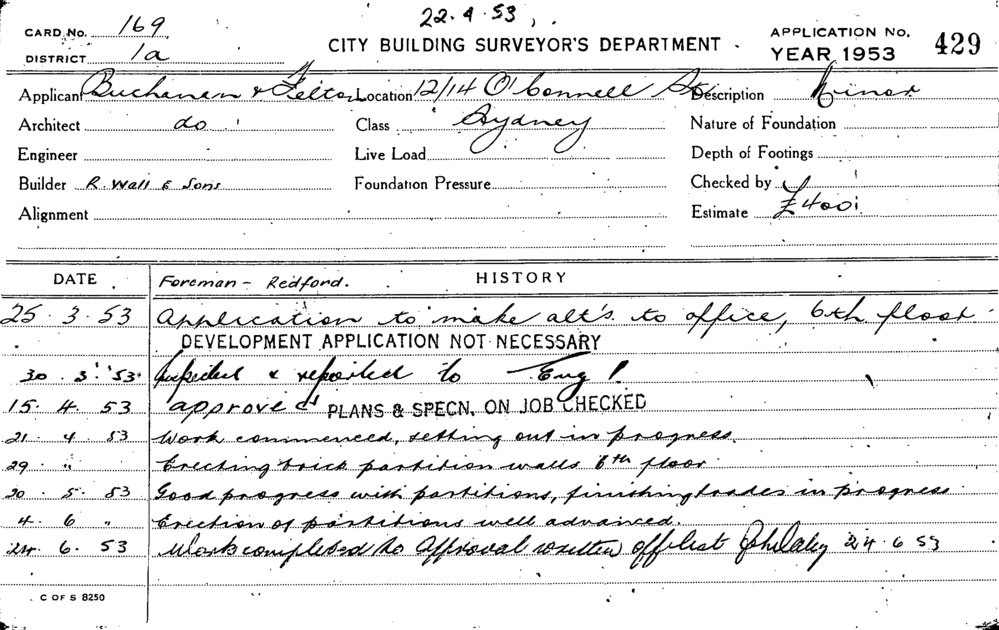 22.4.53
CARD No. 169
CITY BUILDING SURVEYOR'S DEPARTMENT
APPLICATION No. 429
DISTRICT 1a
YEAR 1953
Applicant Buchanan & Felton Location 12/14 O'Connell St Description Minor
Architect do Class Sydney Nature of Foundation
Engineer Live Load Depth of Footings
Builder R. Wall & Sons Foundation Pressure Checked by
Alignment Estimate £400
DATE Foreman - Redford. HISTORY
25.3.53 Application to make alt's. to office, 6th floor
DEVELOPMENT APPLICATION NOT NECESSARY
30.3.53. Inspected & reported to Eng!
15.4.53 approved PLANS & SPECN. ON JOB CHECKED
21.4.53 Work commenced, setting out in progress.
29 " Erecting brick partition walls 6th floor
20.5.53 Good progress with partitions, finishing trades in progress
4.6 " Erection of partitions well advanced.
24.6.53 Work completed to Approval written off list 24.6.53
C OF S 8250